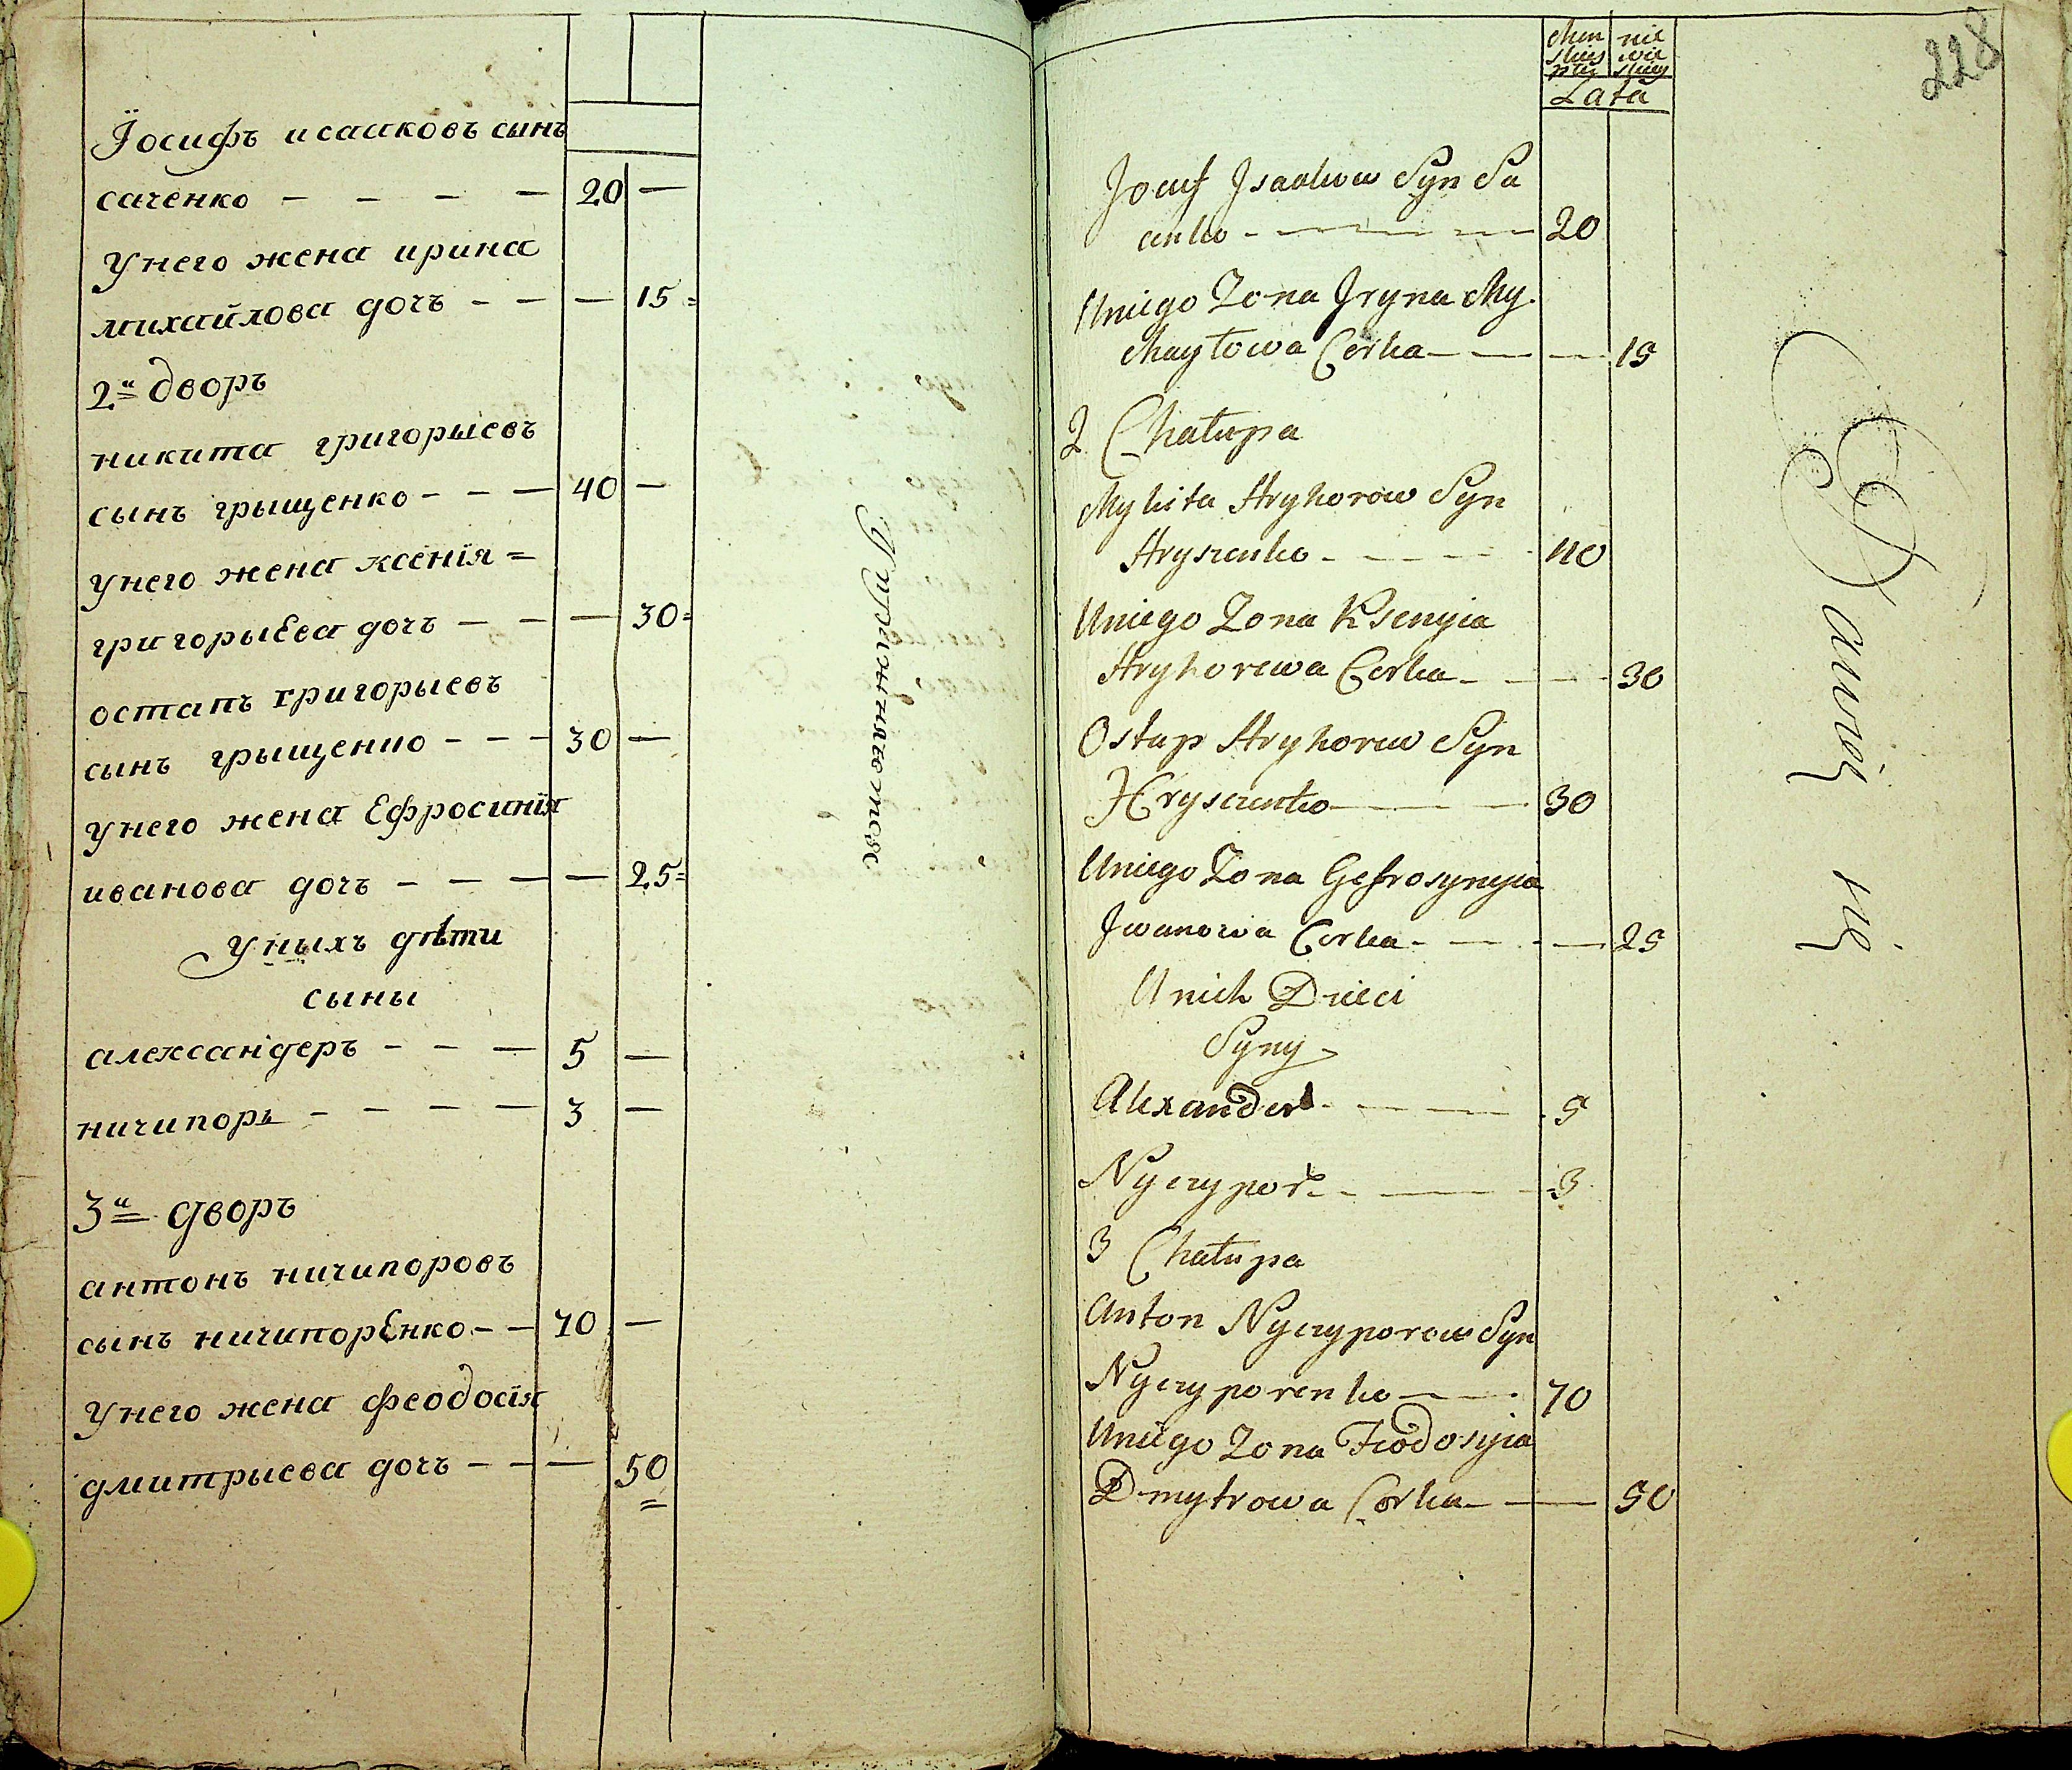 Їосифъ исаиковъ сынъ
саченко - - - - 20 —
У него жена ирина
михайлова дочъ - - — 15
2й дворъ
никита григорыевъ
сынъ грыщенко - - — 40 —
У него жена ксенїя =
григорыева дочъ - - — 30
остапъ григорыевъ
сынъ грыщенко - - - 30 —
У него жена Ефросинїя
иванова дочъ - - — — 25
У ныхъ дѣти
сыны
александеръ - - — 5 —
ничипоръ - - - — 3 —
3й дворъ
антонъ ничипоровъ
сынъ ничипоренко - — 70 —
У него жена феодосїя
дмитрыева дочъ - - — 50
Упражняются
228
Men skiey płci
nie wie skiey
Lata
Jozef Jsaakow Syn Sa
czenko - — — 20
Uniego Zona Jryna My.
chayłowa Corka — — — 15
2 Chałupa
Mykita Hryhorow Syn
Hryszenko - - - - 40
Uniego Zona Ksenyia
Hryhorewa Corka - - — 30
Ostap Hryhorew Syn
Hryszczenko — — 30
Uniego Zona Gefrosynyia
Jwanowa Corka - — - — 25
Unich Dzieci
Syny
Alexander - — — 5
Nyczypor - - — - 3
3 Chałupa
Anton Nyczyporow Syn
Nyczyporenko — — 70
Uniego Zona Fiodosyia
Dmytrowa Corka — — 50
Bawią się